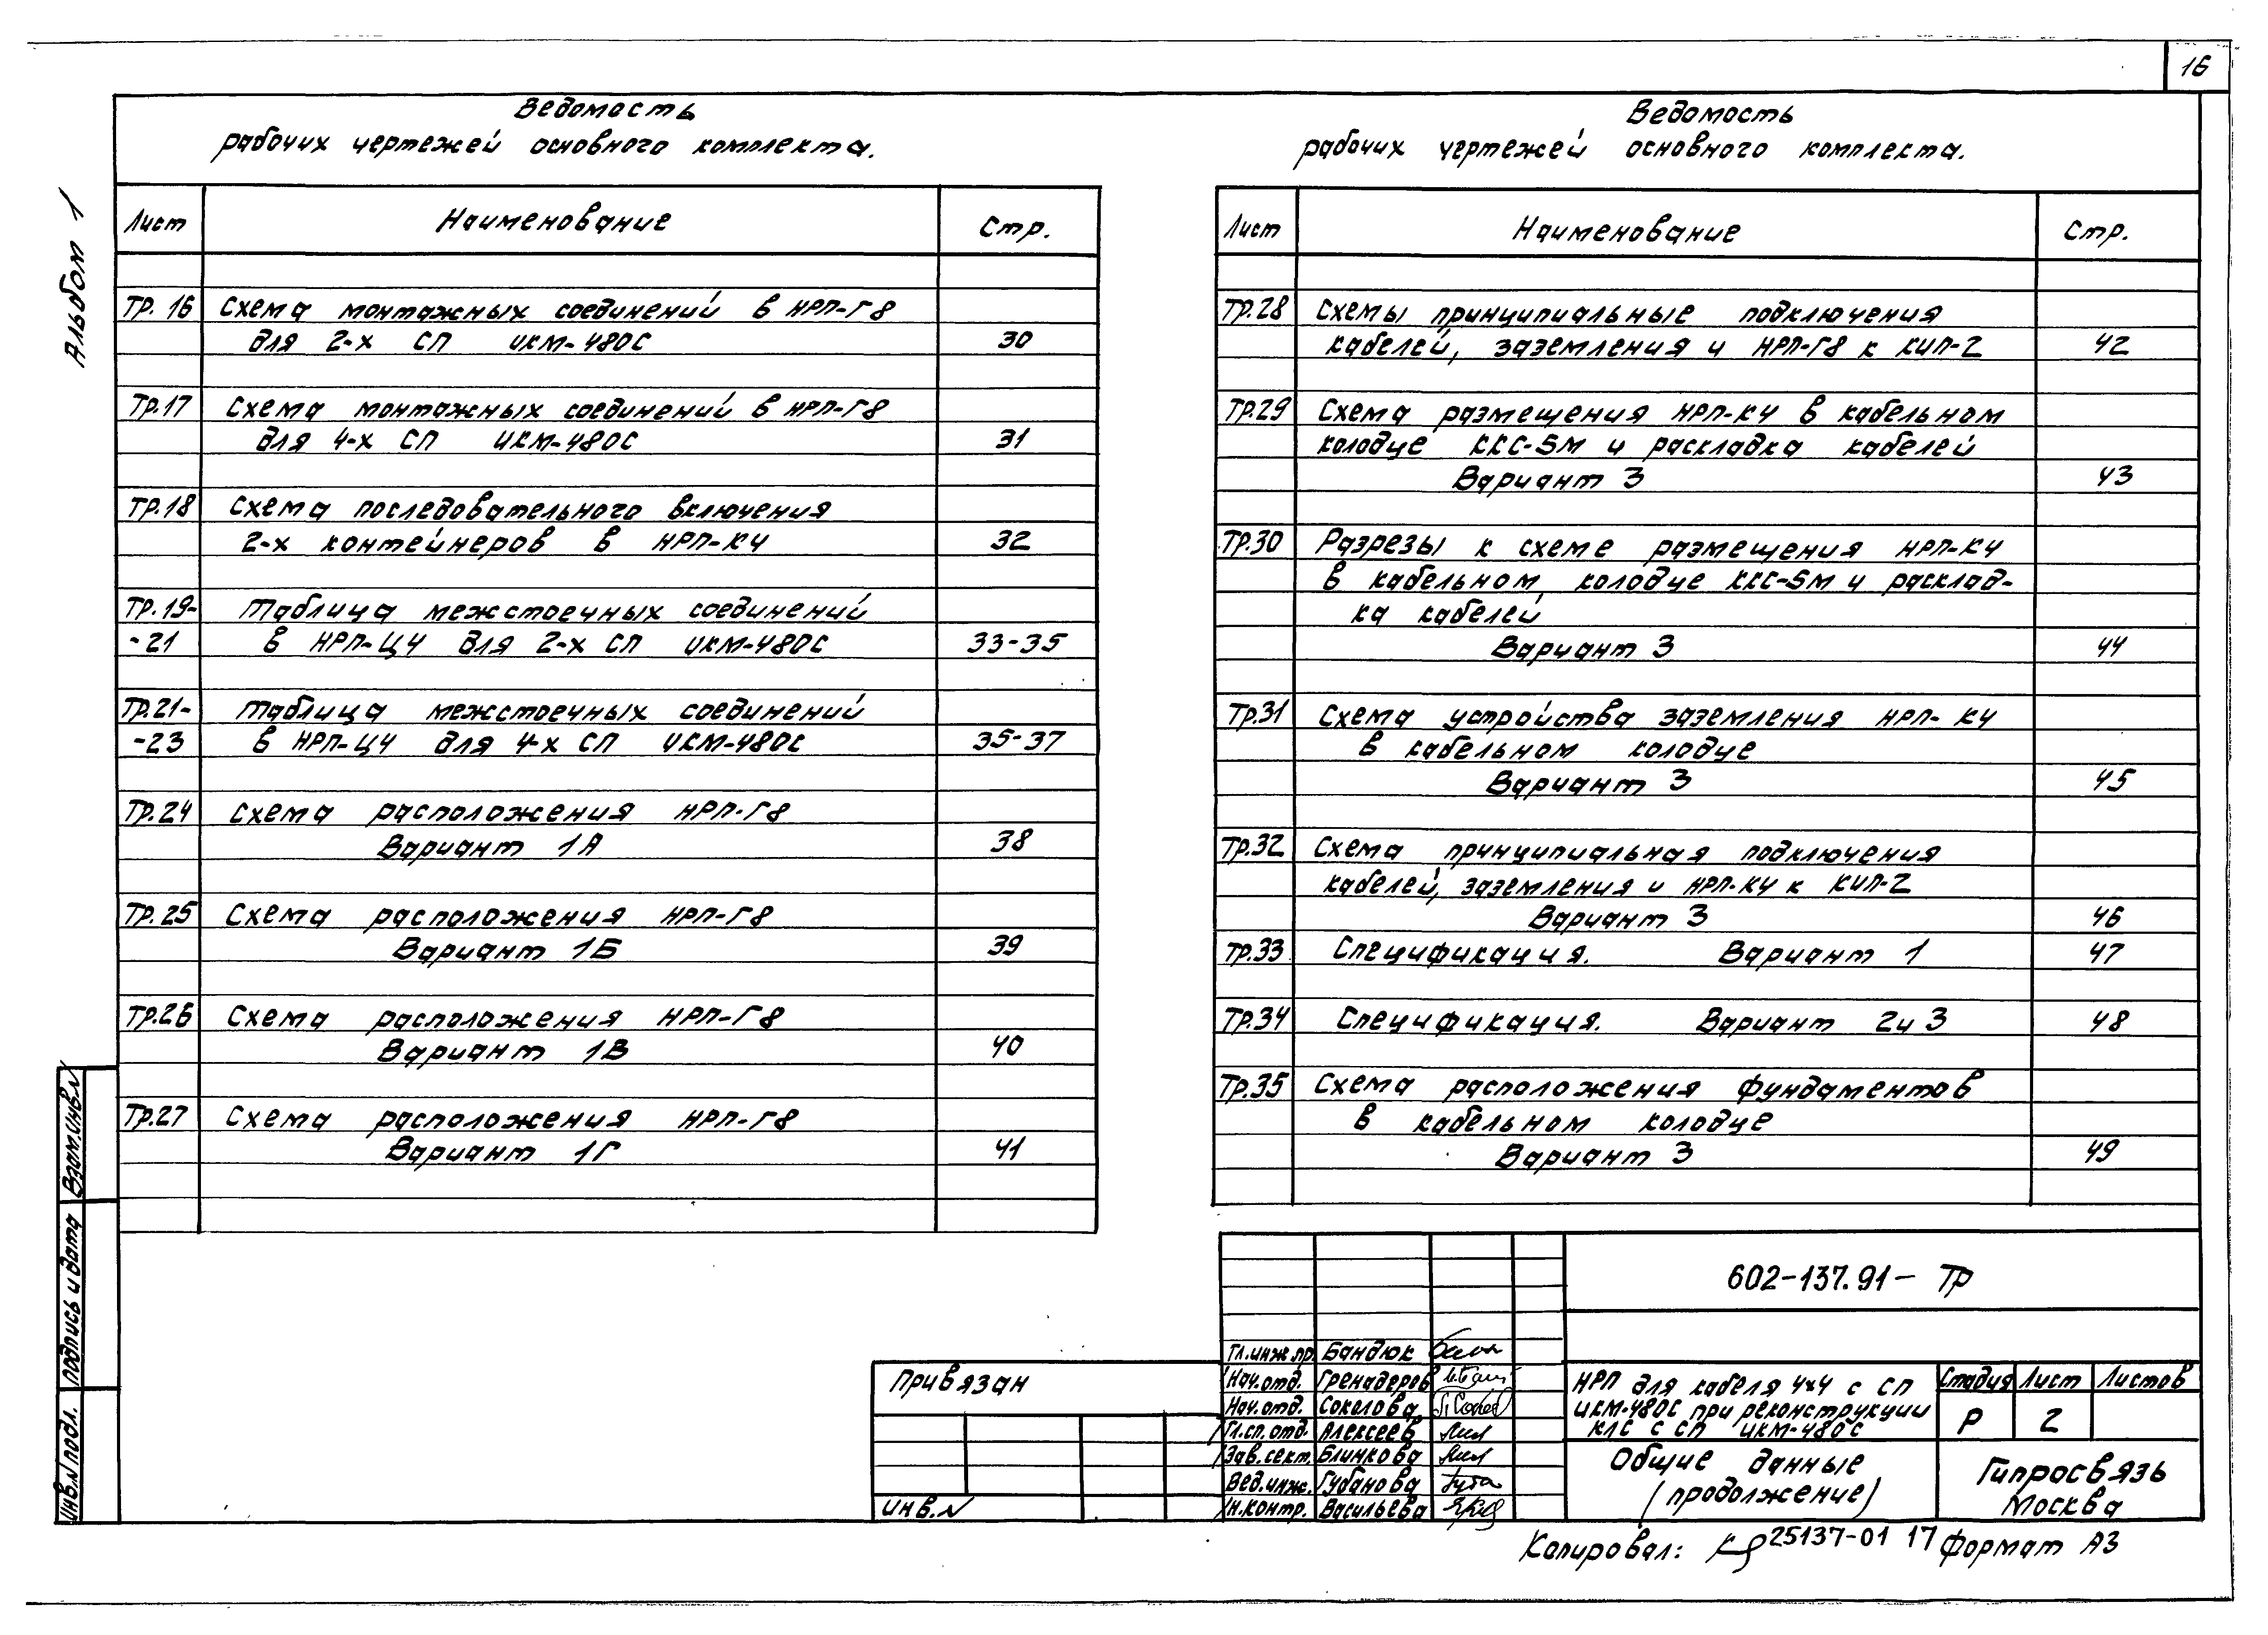 16
Альбом 1
Ведомость
рабочих чертежей основного комплекта.
Лист Наименование Стр.
ТР. 16 Схема монтажных соединений в НРП-Г8
для 2-х СП ИКМ-480С 30
ТР.17 Схема монтажных соединений в НРП-Г8
для 4-х СП ИКМ-480С 31
ТР.18 Схема последовательного включения
2-х контейнеров в НРП-К4 32
ТР.19- Таблица межстоечных соединений
-21 в НРП-Ц4 для 2-х СП ИКМ-480С 33-35
ТР.21- Таблица межстоечных соединений
-23 в НРП-Ц4 для 4-х СП ИКМ-480С 35-37
ТР.24 Схема расположения НРП-Г8
Вариант 1А 38
ТР.25 Схема расположения НРП-Г8
Вариант 1Б 39
ТР.26 Схема расположения НРП-Г8
Вариант 1В 40
ТР.27 Схема расположения НРП-Г8
Вариант 1Г 41
Ведомость
рабочих чертежей основного комплекта.
Лист Наименование Стр.
ТР.28 Схемы принципиальные подключения
кабелей, заземления и НРП-Г8 к КИП-2 42
ТР.29 Схема размещения НРП-К4 в кабельном
колодце ККС-5М и раскладка кабелей
Вариант 3 43
ТР.30 Разрезы к схеме размещения НРП-К4
в кабельном колодце ККС-5М и расклад-
ка кабелей
Вариант 3 44
ТР.31 Схема устройства заземления НРП-К4
в кабельном колодце
Вариант 3 45
ТР.32 Схема принципиальная подключения
кабелей, заземления и НРП-К4 к КИП-2
Вариант 3 46
ТР.33 Спецификация. Вариант 1 47
ТР.34 Спецификация. Вариант 2 и 3 48
ТР.35 Схема расположения фундаментов
в кабельном колодце
Вариант 3 49
Взам.инв.№
Подпись и дата
Инв.№ подл.
Привязан
Инв.№
602-137.91- ТР
Гл.инж.пр. Бандюк
Нач.отд. Гренадеров
Нач.отд. Соколова
Гл.сп.отд. Алексеев
Зав.сект. Блинкова
Вед.инж. Губанова
Н.контр. Васильева
НРП для кабеля 4х4 с СП
ИКМ-480С при реконструкции
КЛС с СП ИКМ-480С
Стадия Лист Листов
Р 2
Общие данные
(продолжение)
Гипросвязь
Москва
Копировал: 25137-01 17 Формат А3